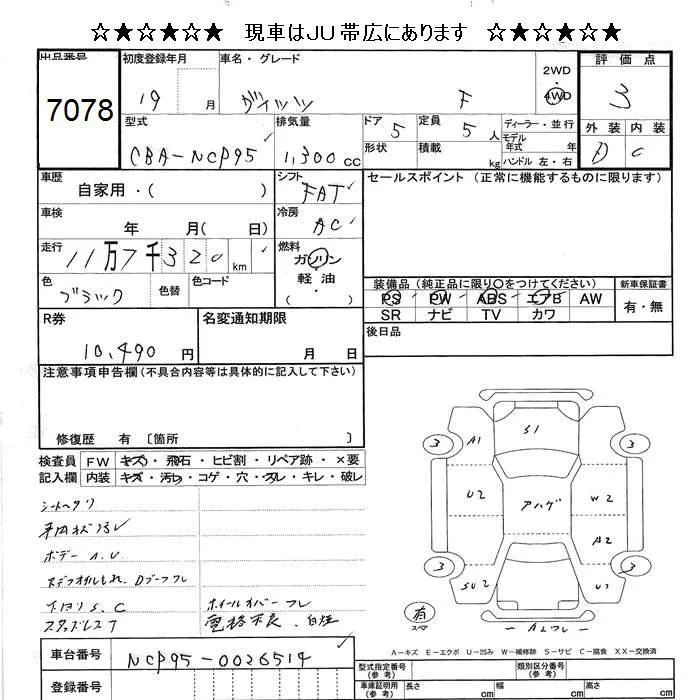 ☆★☆★☆★ 現車はJU帯広にあります ☆★☆★☆★
出品番号 初度登録年月 車名・グレード 2WD 評価点
7078 19 月 ヴィッツ F 4WD 3
型式 排気量 ドア 5 定員 5 人 ディーラー・並行 外装 内装
CBA-NCP95 1,300 cc 形状 積載 kg モデル年式 年 D C
ハンドル 左・右
車歴 自家用・( ) シフト FAT セールスポイント (正常に機能するものに限ります)
車検 年 月( 日) 冷房 AC
走行 11万7千320 km 燃料 ガソリン
軽・油
( ・ )
色 ブラック 色替 色コード 装備品 (純正品に限り○をつけてください) 新車保証書
PS PW ABS エアB AW 有・無
SR ナビ TV カワ
R券 10,490 円 名変通知期限 月 日 後日品
注意事項申告欄(不具合内容等は具体的に記入して下さい)
修復歴 有 〔箇所 〕
検査員 FW キズ・飛石・ヒビ割・リペア跡・×要
記入欄 内装 キズ・汚レ・コゲ・穴・スレ・キレ・破レ
シートヘタリ
ボデー A.U
S.C ホイールカバーフレ
スタッドレス7 電格不良.
A1 S1 3 3
U2 アハゲ W2
A2
SU2 U1 3 3
有
スペア
A2フレ
A-キズ E-エクボ U-凹み W-補修跡 S-サビ C-腐食 XX-交換済
車台番号 NCP95-0026514 型式指定番号 (参考) 類別区分番号 (参考)
登録番号 車庫証明用 (参考) 長さ cm 幅 cm 高さ cm